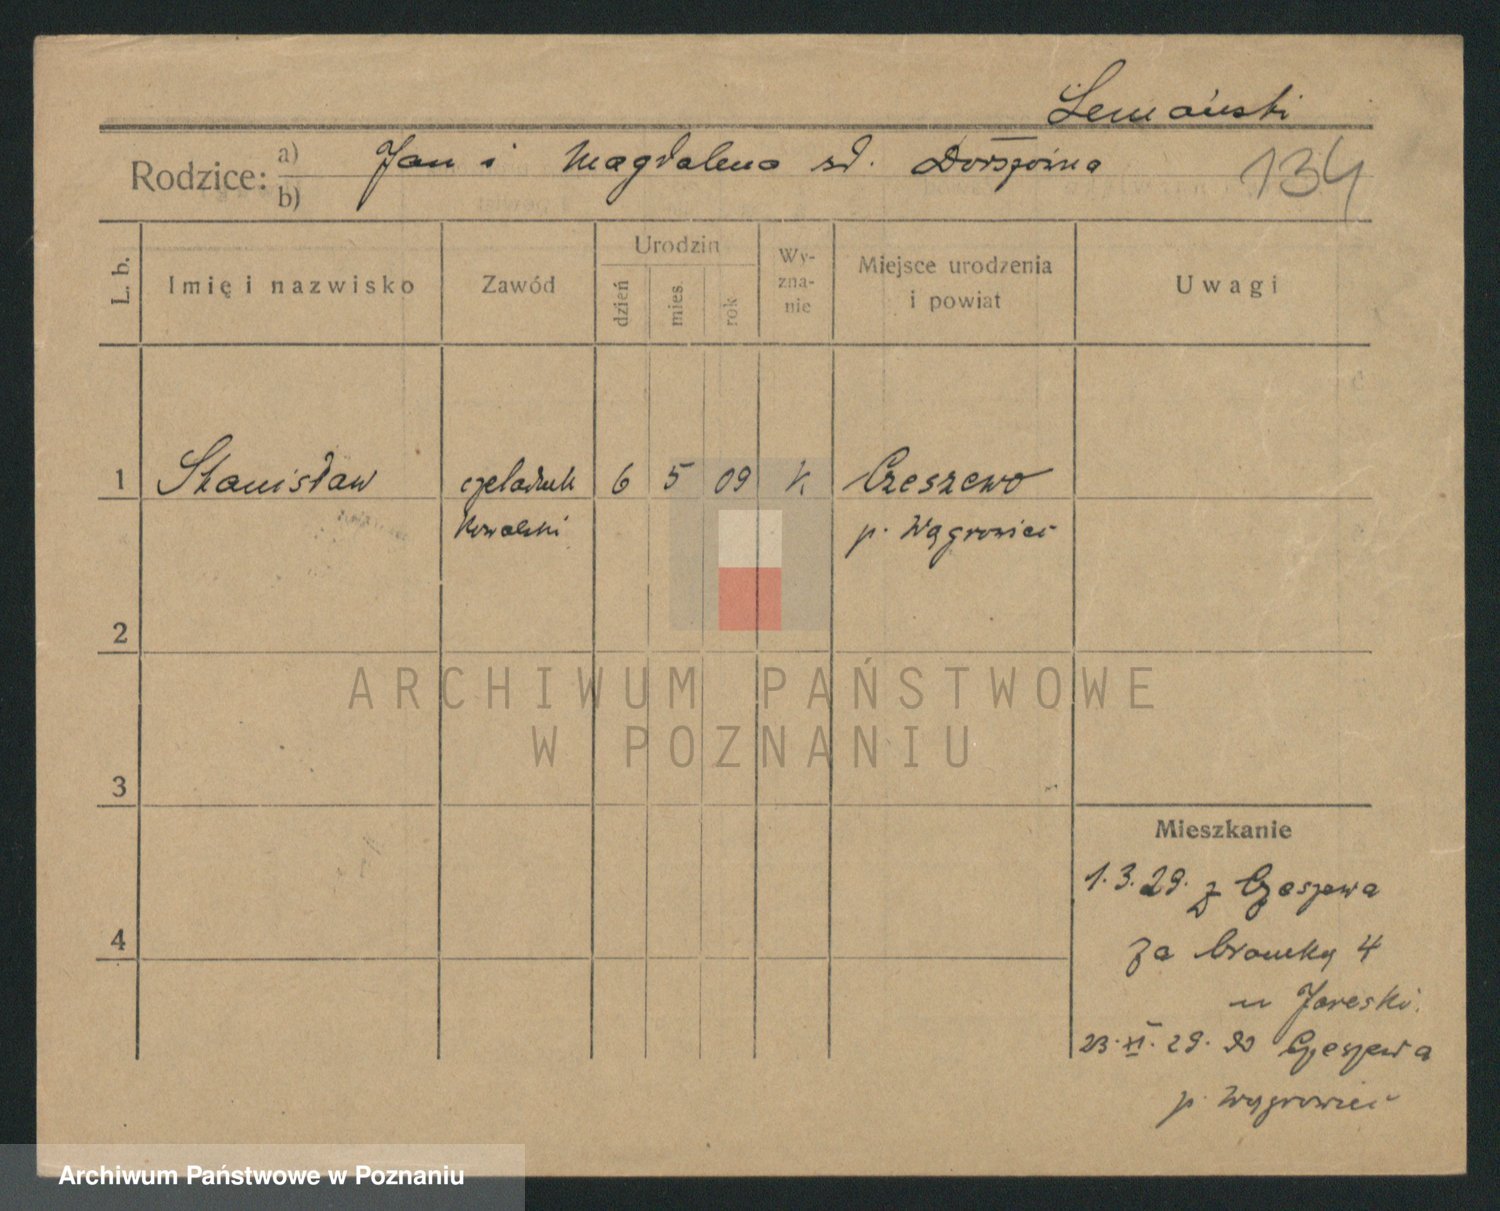 Lemański
Rodzice: a) b) Jan i Magdalena zd. 134
L. b.
Imię i nazwisko
Zawód
Urodzin
dzień
mies.
rok
Wy-
zna-
nie
Miejsce urodzenia
i powiat
Uwagi
1 Stanisław czeladnik 6 5 09 k. Czeszewo
kowalski p. Wągrowiec
2
3
4
Mieszkanie
1.3.29. z Czeszewa
za bramką 4
u Jareski.
23.XI.29. do Czeszewa
p. Wągrowiec
ARCHIWUM PAŃSTWOWE
W POZNANIU
Archiwum Państwowe w Poznaniu